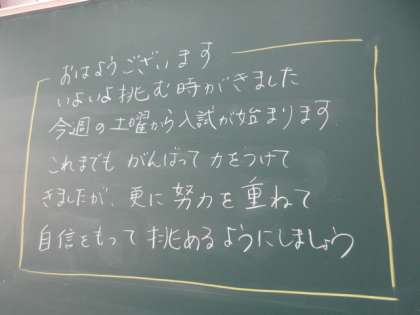 おはようございます
いよいよ挑む時がきました
今週の土曜から入試が始まります
これまでも がんばって力をつけて
きましたが、更に努力を重ねて
自信をもって挑めるようにしましょう